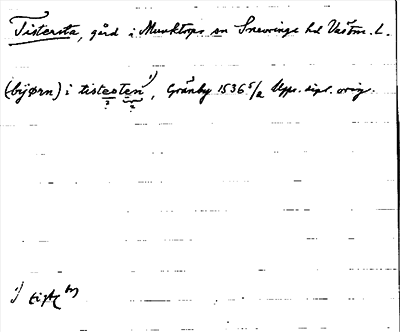 Tistersta, gård i Munktorps sn Snevringe hd Västm. L.
(bijørn) i tistesten ¹⁾, Gränby 1536 5/2 Upps. dipl. orig.
¹⁾